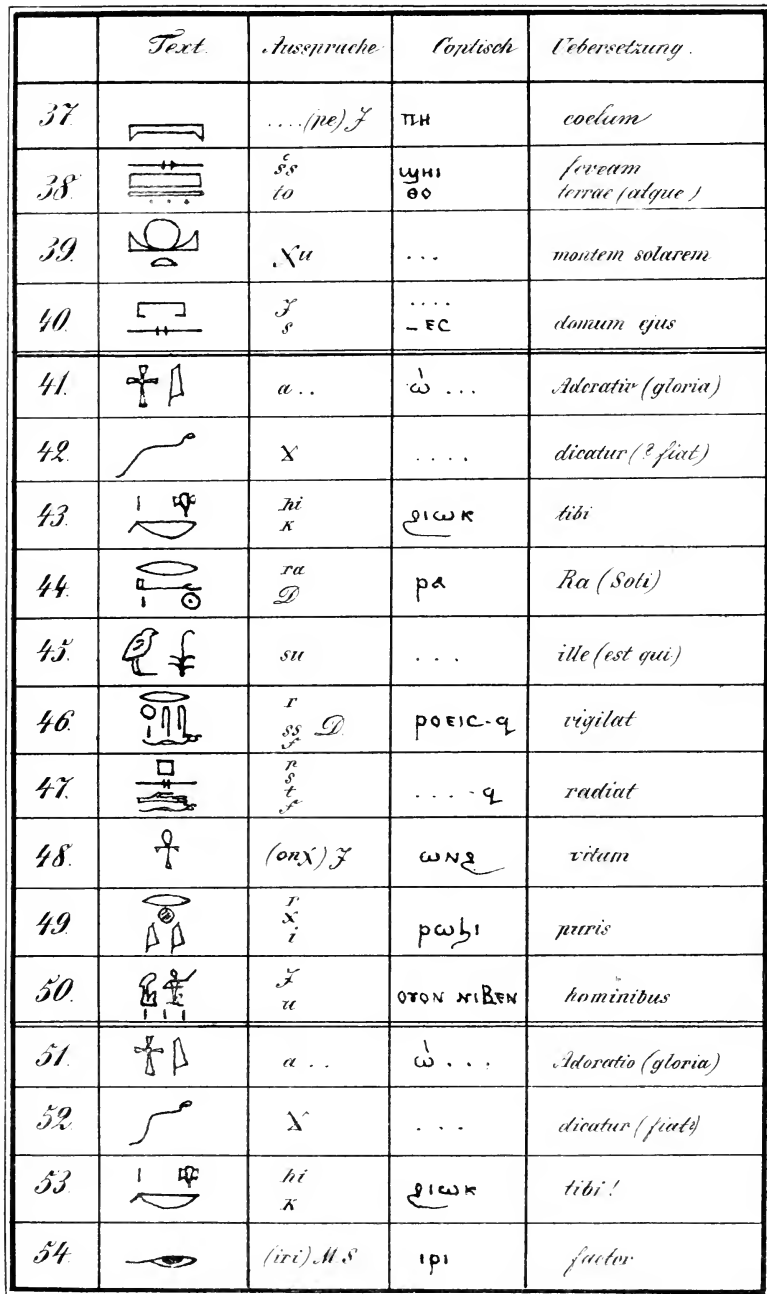 Text. Aussprache Coptisch Uebersetzung.
37. ....(pe) J ⲡⲏ coelum
38. šs ϣⲏⲓ foveam
to ⲑⲟ terrae (atque)
39. Xu ... montem solarem
40. J ....
s – ⲉⲥ domum ejus
41. a .. ⲱ̀ ... Adoratio (gloria)
42. X .... dicatur (? fiat)
43. hi
K ϩⲓⲱⲕ tibi
44. ra
D ⲣⲁ Ra (Soti)
45. su ... ille (est qui)
46. r
ss D
f ⲣⲟⲉⲓⲥ-ϥ vigilat
47. p
s
t
f ....-ϥ radiat
48. (onX́) J ⲱⲛϩ vitam
49. r
X
i ⲣⲱϧⲓ puris
50. J
u ⲟⲩⲟⲛ ⲛⲓⲃⲉⲛ hominibus
51. a .. ⲱ̀ ... Adoratio (gloria)
52. X ... dicatur (fiat?)
53. hi
K ϩⲓⲱⲕ tibi!
54. (iri) M S ⲓⲣⲓ factor